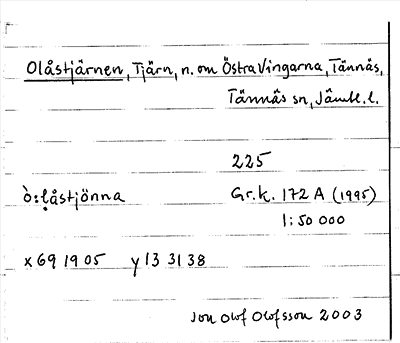 Olåstjärnen, Tjärn, n. om Östra Vingarna, Tännäs,
Tännäs sn, Jämtl. l.
225
ò:ḷåstjönna Gr.k. 172 A (1995)
1:50 000
x 69 19 05 y 13 31 38
Jon Olof Olofsson 2003